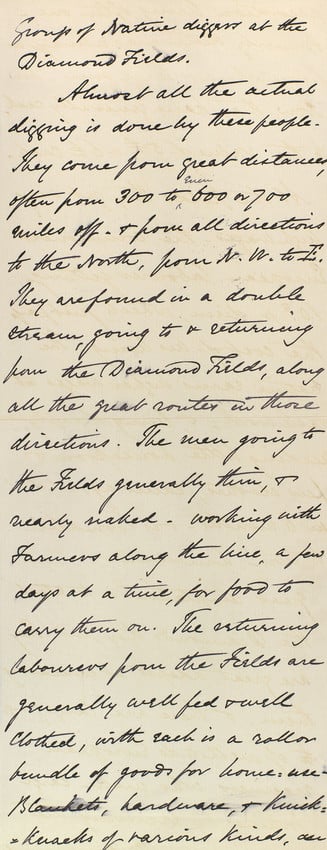 Groups of Native diggers at the
Diamond Fields.
Almost all the actual
digging is done by these people.
They come from great distances,
often from 300 to even 600 or 700
miles off - & from all directions
to the North, from N. W. to E.
They are found in a double
stream, going to & returning
from the Diamond Fields, along
all the great routes in those
directions. The men going to
the Fields generally thin, &
nearly naked - working with
Farmers along the line, a few
days at a time, for food to
carry them on. The returning
labourers from the Fields are
generally well fed & well
clothed, with each is a roll or
bundle of goods for home=use-
Blankets, hardware, & Knick=
=Knacks of various kinds, an